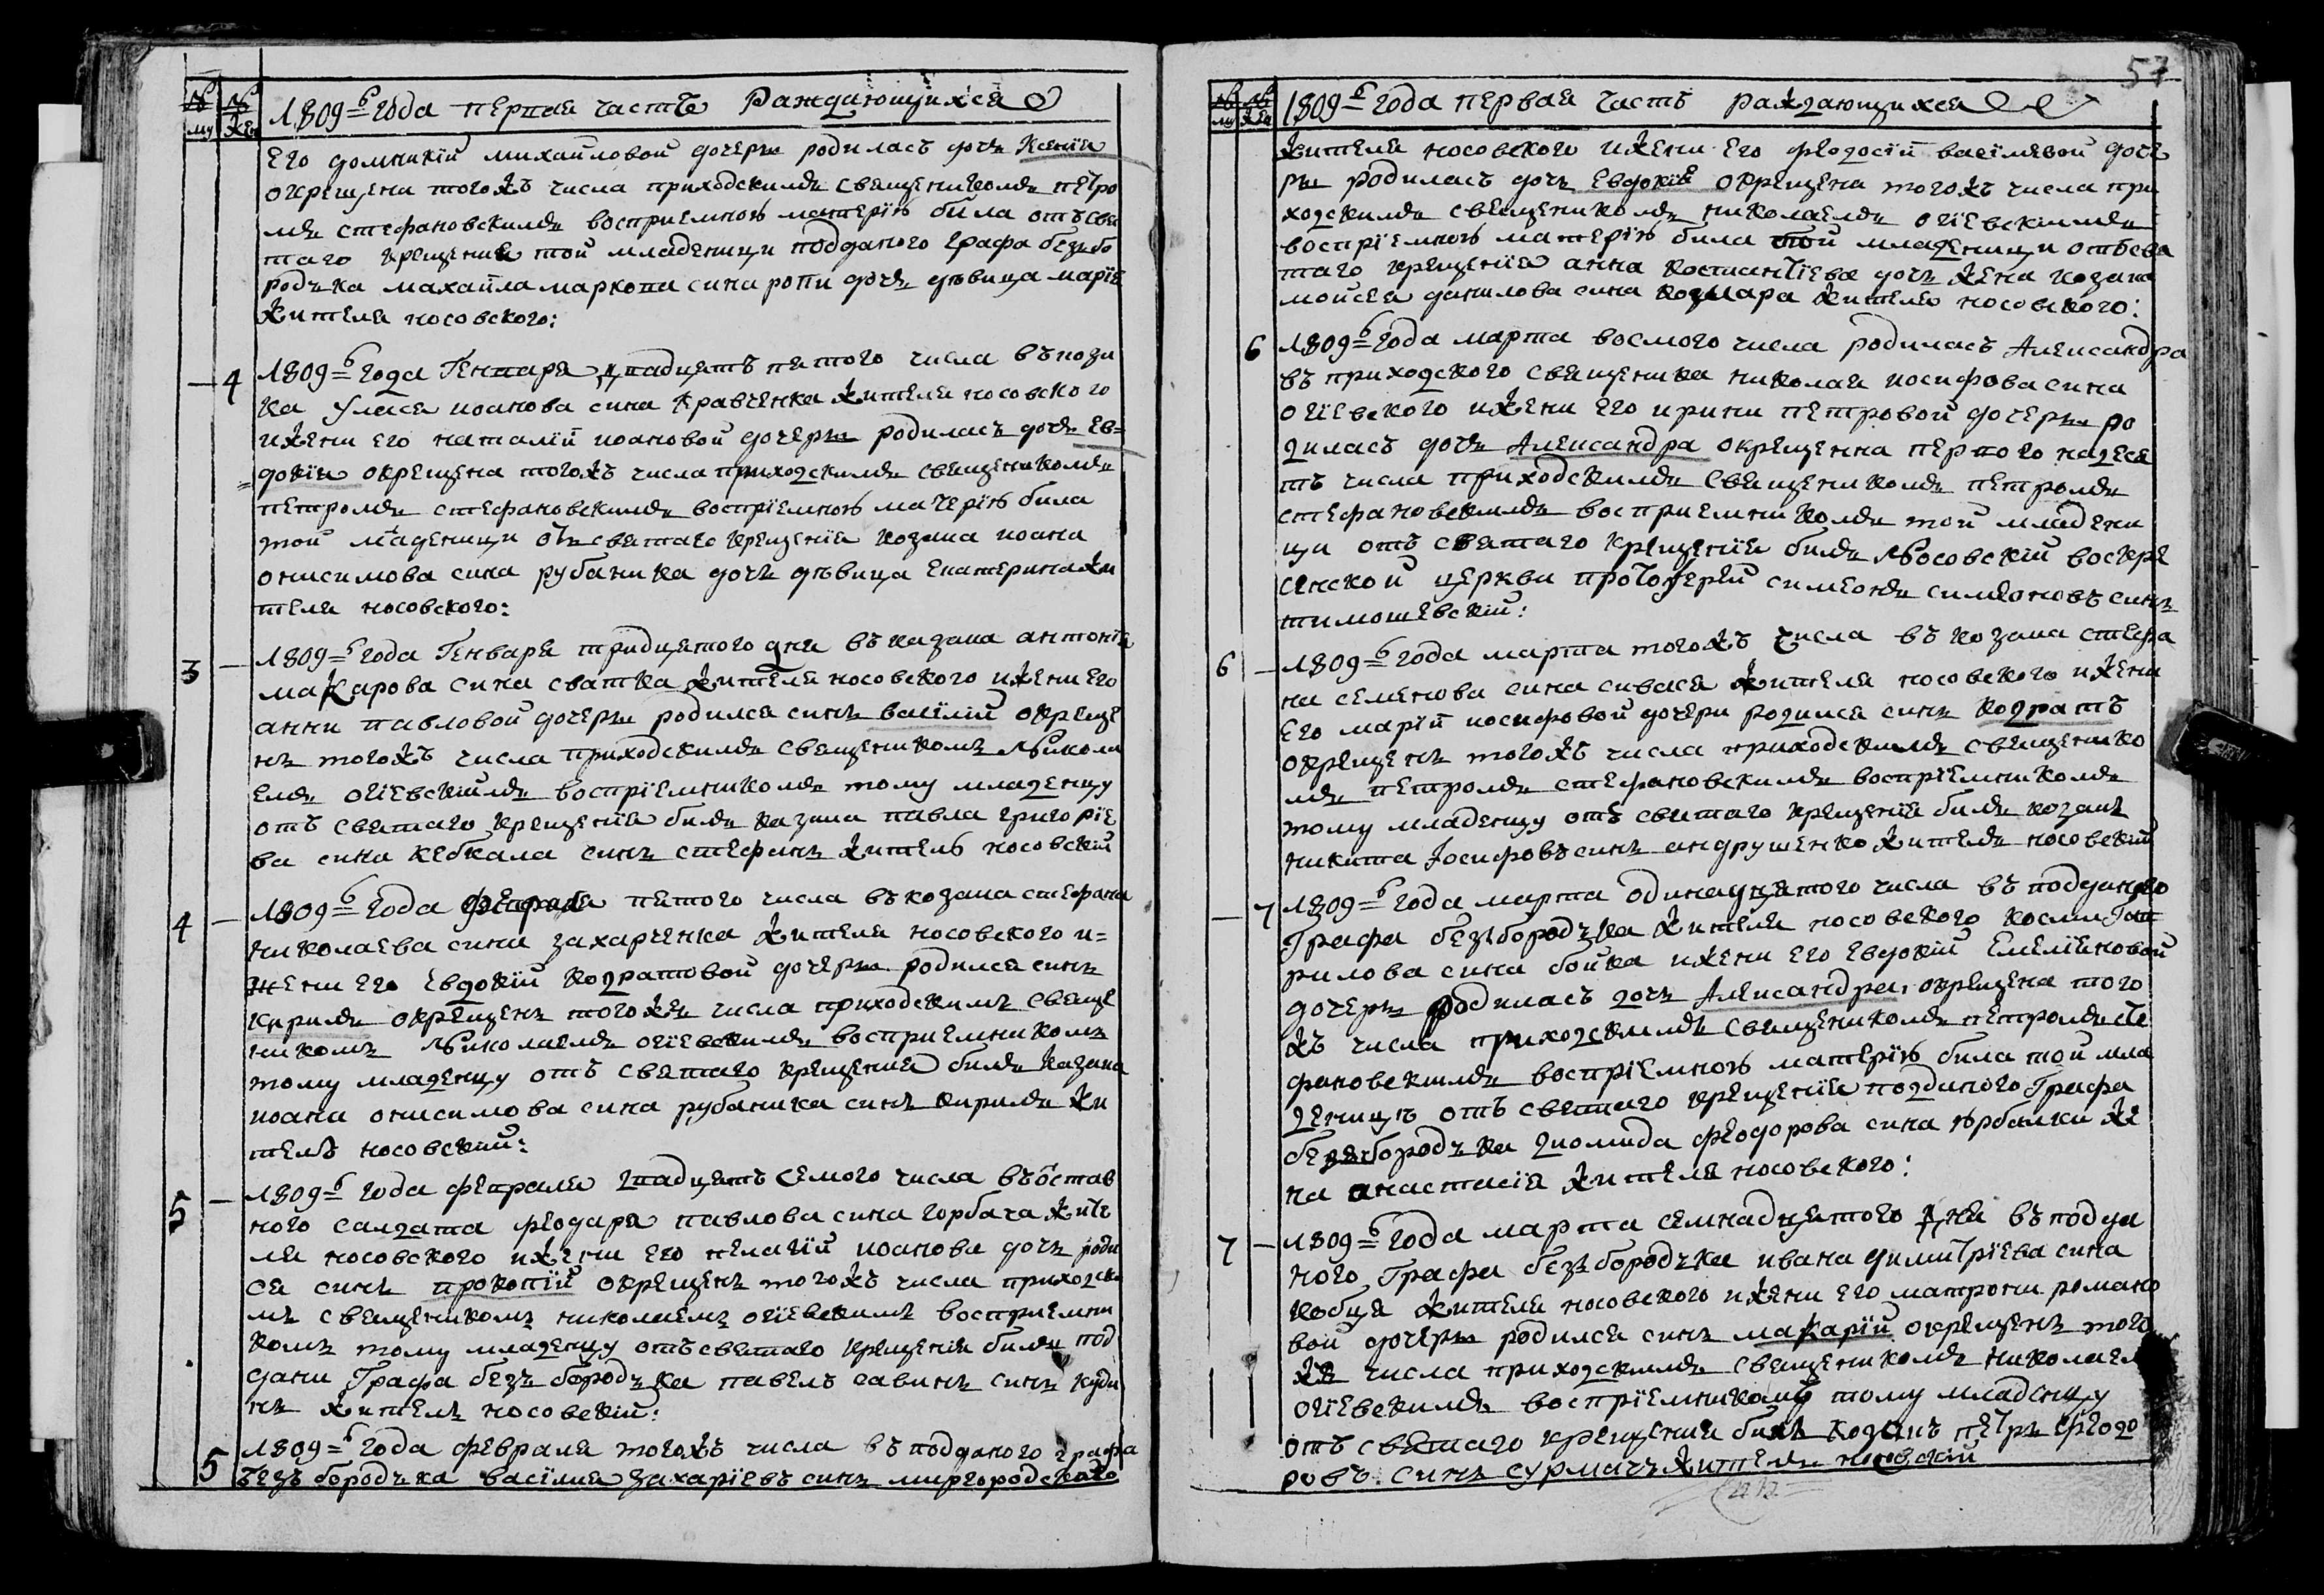 № му № жен 1809=го года первая часть раждающихся
его домникій михайловой дочеры родилась дочь Ксенія
окрещена тогожъ числа приходскимъ священикомъ петро
мъ стефановскимъ восприемною матерію била отъ свя
таго крещения той младеници подданого графа безъбо
родъка михайла маркова сина ропи дочъ дѣвица марія
жителя носовского:
4 1809=го года Генваря двадцять пятого числа въ коза
ка Уласа иоанова сина Кравченка жителя носовского
ижени его наталій иоановой дочеры родилась дочъ Ев=
=докія окрещена тогожъ числа приходскимъ священикомъ
петромъ стефановскимъ воспріемною матерію била
той младеници отъ святаго крещенія козака иоана
онисимова сина рубаника дочъ дѣвица екатерина жи
теля носовского:
3 1809=го года Генваря тридцятого дня въ казака антонія
макарова сина сватка жителя носовского ижени его
анни павловой дочеры родился синъ василій окреще
нъ тогожъ числа приходскимъ священикомъ Никола
емъ огіевскіимъ воспріемникомъ тому младенцу
отъ святаго крещенія билъ казака павла григоріе
ва сина кебкала синъ стефанъ житель носовскій
4 1809=го года февраля пятого числа въ козака стефана
николаева сина захарченка жителя носовского и=
жени его Евдокій кодратовой дочеры родился синъ
кирилъ окрещенъ тогожъ числа приходскимъ свяще
никомъ Николаемъ огіевскимъ восприемникомъ
тому младенцу отъ святаго крещения билъ казака
иоана онисимова сина рубаника синъ кирилъ жи
тель носовскій:
5 1809=го года февраля двадцять семого числа въ остав
ного салдата феодара павлова сина горбача жите
ля носовского ижени его пелагій иоанова дочъ роди
ся синъ прокопій окрещенъ тогожъ числа приходски
мъ священикомъ николаемъ огіевскимъ восприемни
комъ тому младенцу отъ святаго крещенія билъ под
дани Графа безъбородъка павелъ савинъ синъ
житель носовскій:
5 1809=го года февраля тогожъ числа въ подданого графа
безъбородъка василия захаріевъ синъ миргородского
57
№ му № жен 1809=го года первая часть раждающихся
жителя носовского ижени его феодосій василевой доче
ры родилась дочъ Евдокія окрещена тогожъ числа при
ходскимъ священикомъ николаемъ огіевскіимъ
воспріемною матерію била той младеници отъ свя
таго крещенія анна костантіева дочъ жена козака
мойсея данилова сина жителя носовского:
6 1809=го года марта восмого числа родилась Александра
въ приходского священика николая иосифова сина
огіевского ижени его ирини петровой дочеры ро
дилась дочъ Александра окрещенна первого надеся
ть числа приходскимъ священикомъ петромъ
стефановскимъ восприемникомъ той младени
ци отъ святаго крещенія билъ Носовскій воскре
сенской церкви протоіерей симеонъ симеоновъ синъ
тимошевскій:
6 1809=го года марта тогожъ числа въ козака стефа
на семенова сина сиваса жителя носовского ижени
его марій иосифовой дочери родился синъ Кодратъ
окрещенъ тогожъ числа приходскимъ священико
мъ петромъ стефановскимъ воспріемникомъ
тому младенцу отъ святаго крещенія билъ козакъ
никита Іосифовъ синъ андрушенко житель носовскій
7 1809=го года марта одинадцятого числа въ подданого
Графа безъбородъка жителя носовского косми Гав
рилова сина бойка ижени его Евдокій Емеліяновой
дочеры родилась дочъ Александра, окрещена того
жъ числа приходскимъ священикомъ петромъ сте
фановскимъ воспріемною матерію била той мла
деници отъ святаго крещенія подданого Графа
безъбородъка диомида феодорова сина юрбалки же
на анастасія жителя носовского:
7 1809=го года марта семнадцятого дня въ подда
ного Графа безъбородъка ивана димитріева сина
кобця жителя носовского ижени его матрони романо
вой дочеры родился синъ макарій окрещенъ того
жъ числа приходскимъ священикомъ николаем
огіевскимъ воспріемникомъ тому младенцу
отъ святаго крещения билъ козакъ петръ феодо
ровъ синъ сурмачъ житель носовскій